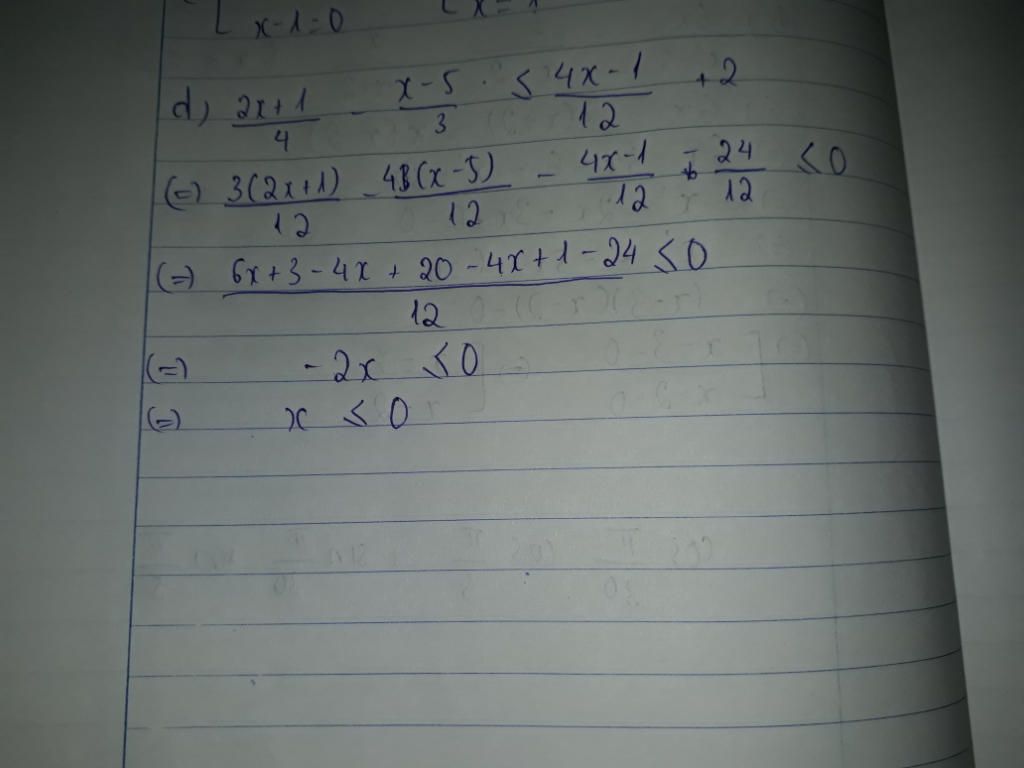 x-1=0
d) \frac{2x+1}{4} - \frac{x-5}{3} \le \frac{4x-1}{12} + 2
(=) \frac{3(2x+1)}{12} - \frac{4(x-5)}{12} - \frac{4x-1}{12} - \frac{24}{12} \le 0
(=) \frac{6x+3-4x+20-4x+1-24}{12} \le 0
(=) -2x \le 0
(=) x \le 0